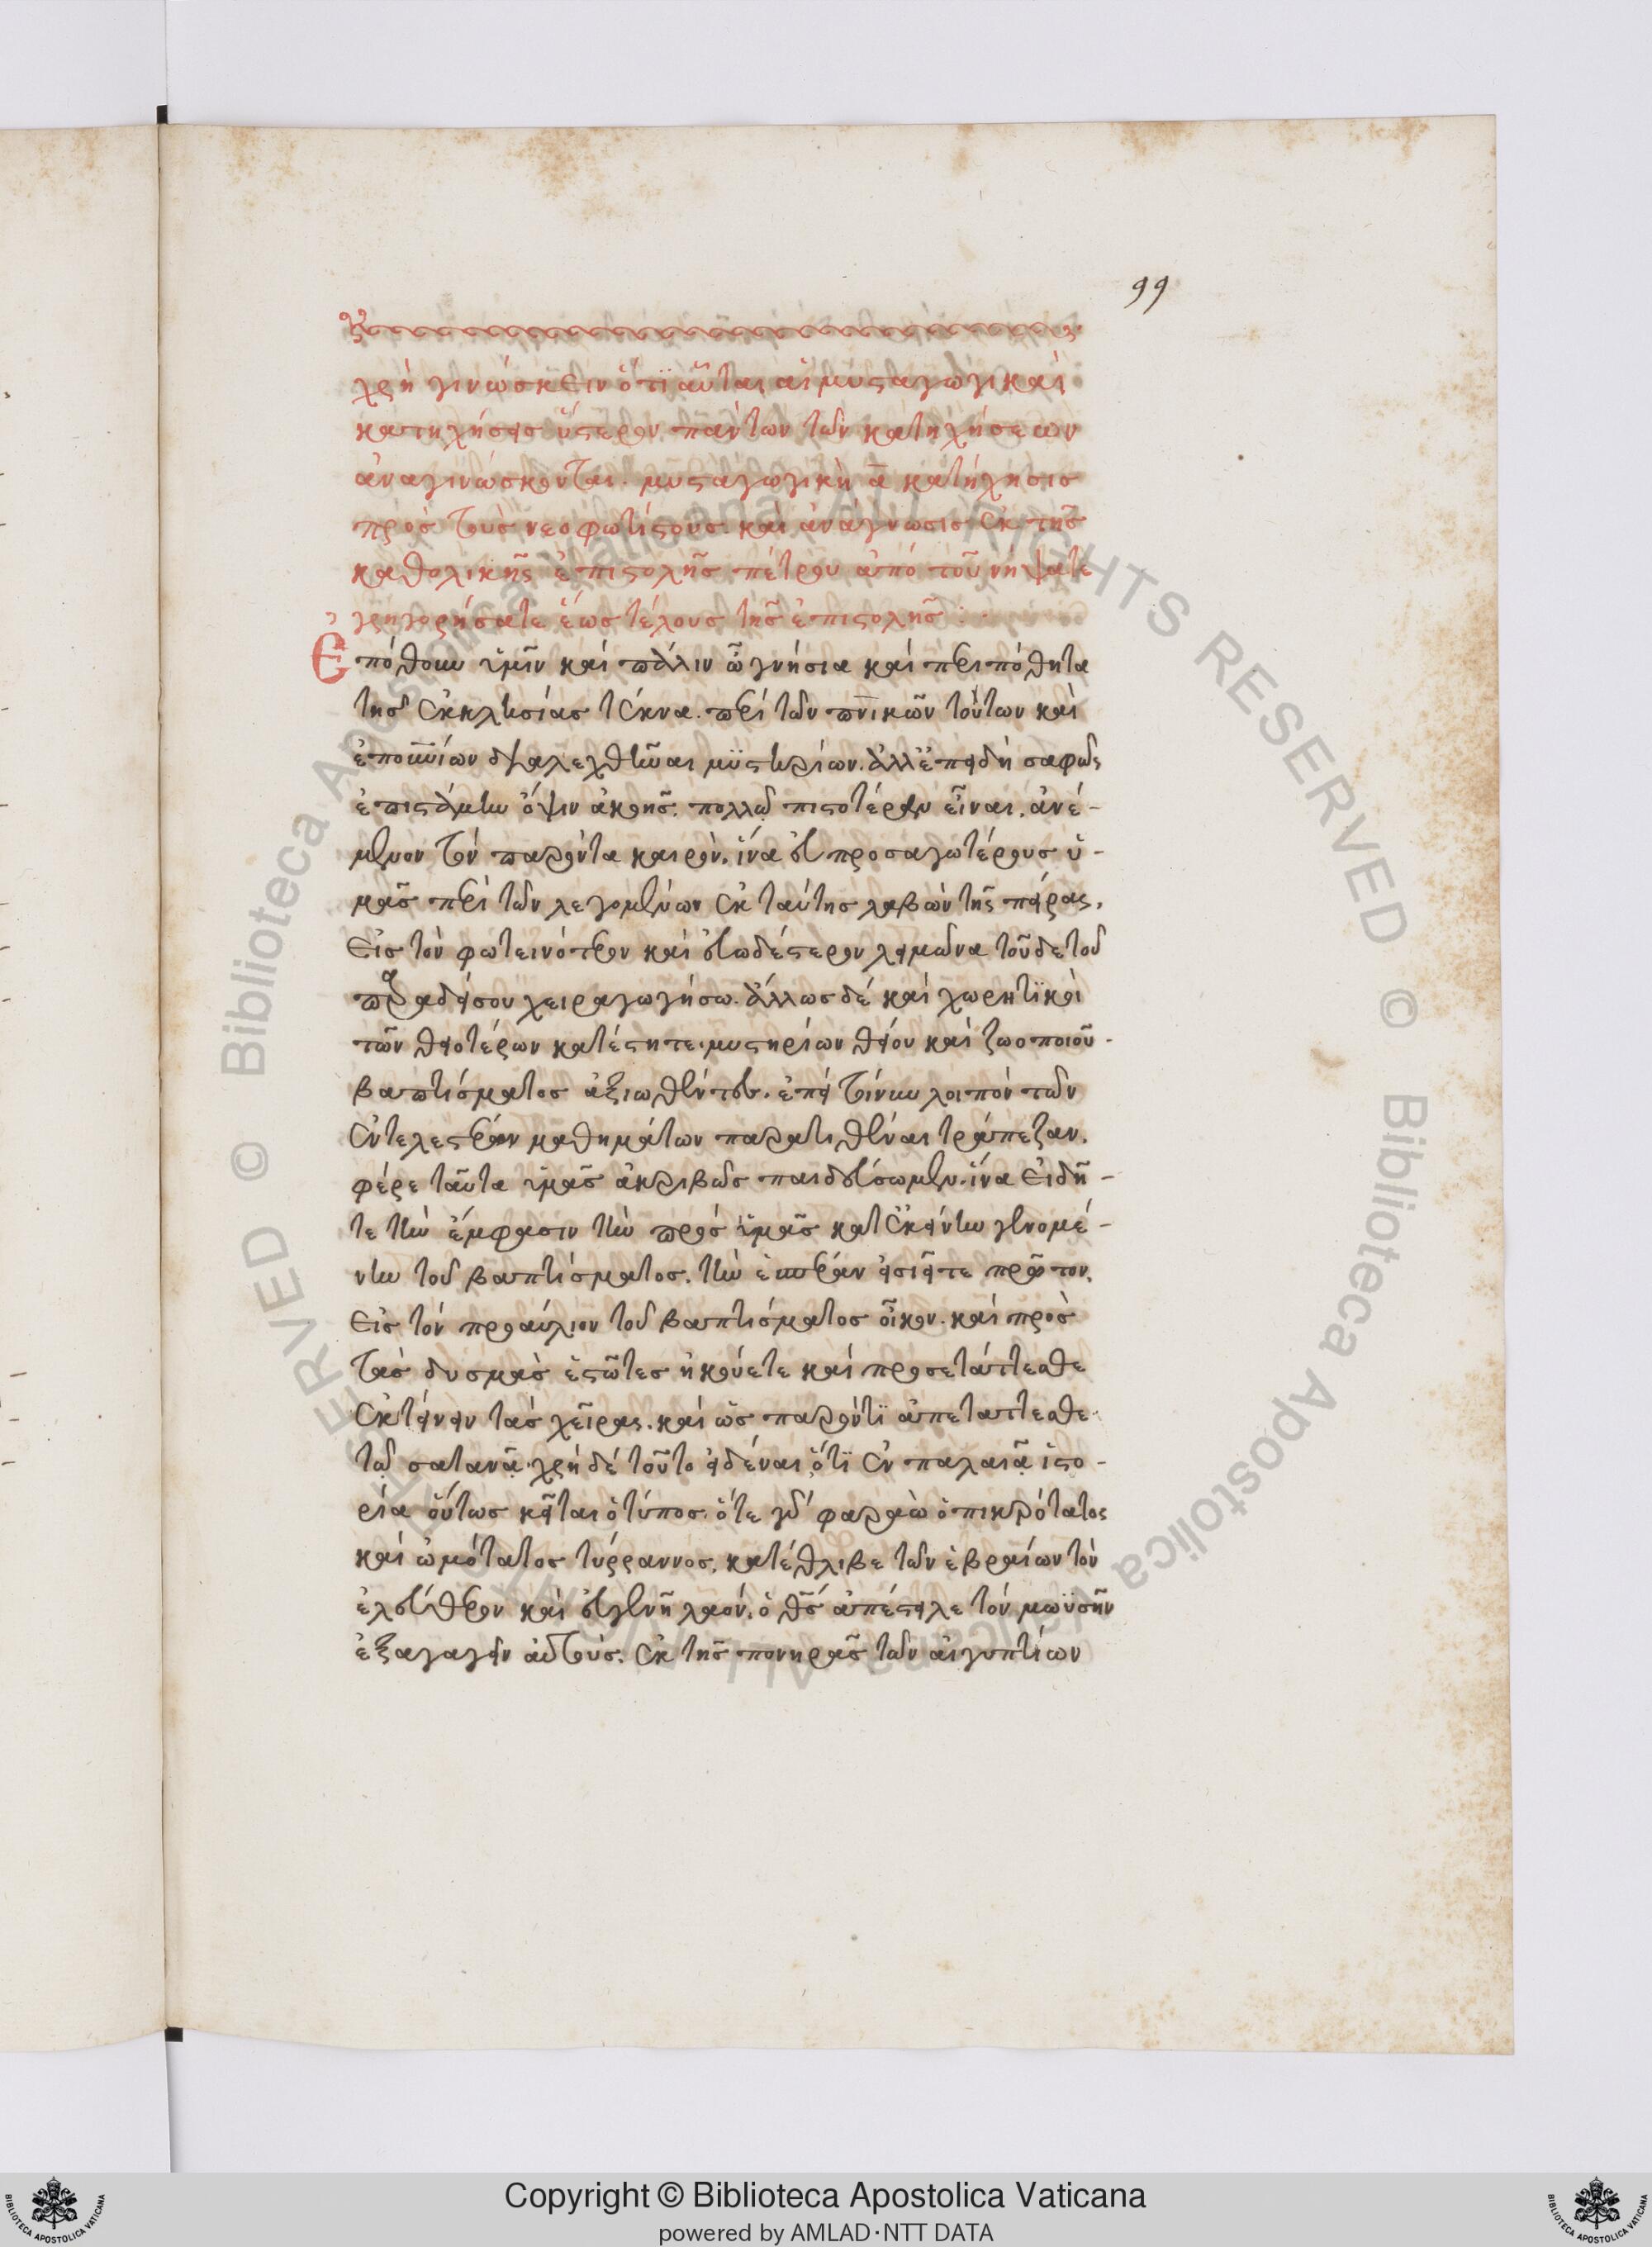 99
χρὴ γινώσκειν ὅτι αὗται αἱ μυσταγωγικαὶ
κατηχήσεις ὕστερον πάντων τῶν κατηχήσεων
ἀναγινώσκονται. μυσταγωγικὴ α̅ κατήχησις
πρὸς τοὺς νεοφωτίστους. καὶ ἀνάγνωσις ἐκ τῆς
καθολικῆς ἐπιστολῆς πέτρου ἀπὸ τοῦ νήψατε
γρηγορήσατε ἕως τέλους τῆς ἐπιστολῆς :
Ἐπόθουν ὑμῖν καὶ πάλιν ὦ γνήσια καὶ περιπόθητα
τῆς ἐκκλησίας τέκνα. περὶ τῶν πνικῶν τούτων καὶ
ἐπουνίων διαλεχθῆναι μϋστηρίων. ἀλλ' ἐπειδὴ σαφῶς
ἠπιστάμην ὄψιν ἀκοῆς. πολλῷ πιστοτέραν εἶναι. ἀνέ-
μενον τὸν παρόντα καιρὸν. ἵνα εὐπροσαγωτέρους ὑ-
μᾶς περὶ τῶν λεγομένων ἐκ ταύτης λαβὼν τῆς πείρας.
εἰς τὸν φωτεινότερον καὶ εὐωδέστερον λειμῶνα τοῦδε τοῦ
παραδείσου χειραγωγήσω. ἄλλως δὲ καὶ χωρητϊκοὶ
τῶν θειοτέρων κατέστητε. μυστηρίων θείου καὶ ζωοποιοῦ
βαπτίσματος ἀξιωθέντες. ἐπεὶ τοίνυν λοιπὸν τῶν
ἐντελεστέρων μαθημάτων παρατιθέναι τράπεζαν.
φέρε ταῦτα ὑμᾶς ἀκριβῶς παιδεύσωμεν. ἵνα εἰδῆ-
τε τὴν ἔμφασιν τὴν πρὸς ὑμᾶς κατ' ἐκείνην γενομέ-
νην τοῦ βαπτίσματος. τὴν ἑσπέραν εἰσῄειτε πρῶτον.
εἰς τὸν προαύλιον τοῦ βαπτίσματος οἶκον. καὶ πρὸς
τὰς δυσμὰς ἑστῶτες ἠκούετε καὶ προσετάττεσθε
ἐκτείνειν τὰς χεῖρας. καὶ ὡς παρόντϊ ἀπετάττεσθε
τῷ σατανᾷ. χρὴ δὲ τοῦτο εἰδέναι ὅτϊ ἐν παλαιᾷ ἱστο-
ρίᾳ οὕτως κεῖται ὁ τύπος. ὅτε γὰρ φαραὼ ὁ πικρότατος
καὶ ὠμότατος τύρραννος. κατέθλιβε τῶν ἑβραίων τὸν
ἐλεύθερον καὶ εὐγενῆ λαόν. ὁ θς ἀπέστειλε τὸν μωϋσῆν
ἐξαγαγεῖν αὐτούς. ἐκ τῆς πονηρᾶς τῶν αἰγυπτίων
© Biblioteca Apostolica Vaticana ALL RIGHTS RESERVED
Copyright © Biblioteca Apostolica Vaticana
powered by AMLAD·NTT DATA